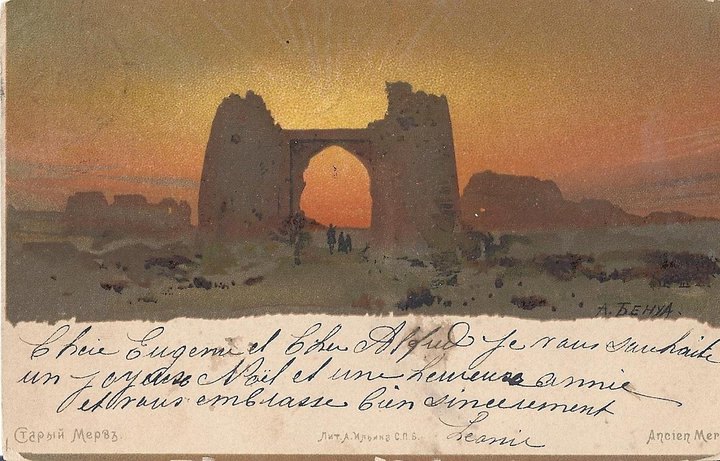 А. БЕНУА.
Chère Eugenie et Cher Alfred je vous souhaite
un joyeux Noël et une heureuse année
et vous emblasse bien sincerement
Leonie
Старый Мервъ.
Лит. А. Ильина С.П.Б.
Ancien Mer